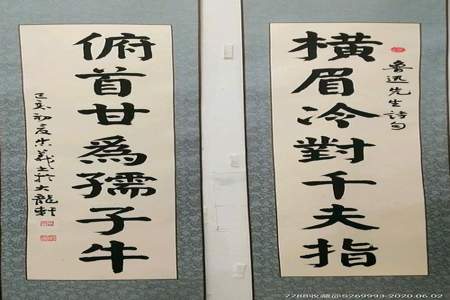 魯迅先生詩句
橫眉冷對千夫指
俯首甘爲孺子牛
己亥初夏 於大龍軒
7788收藏@S269993-2020.06.02